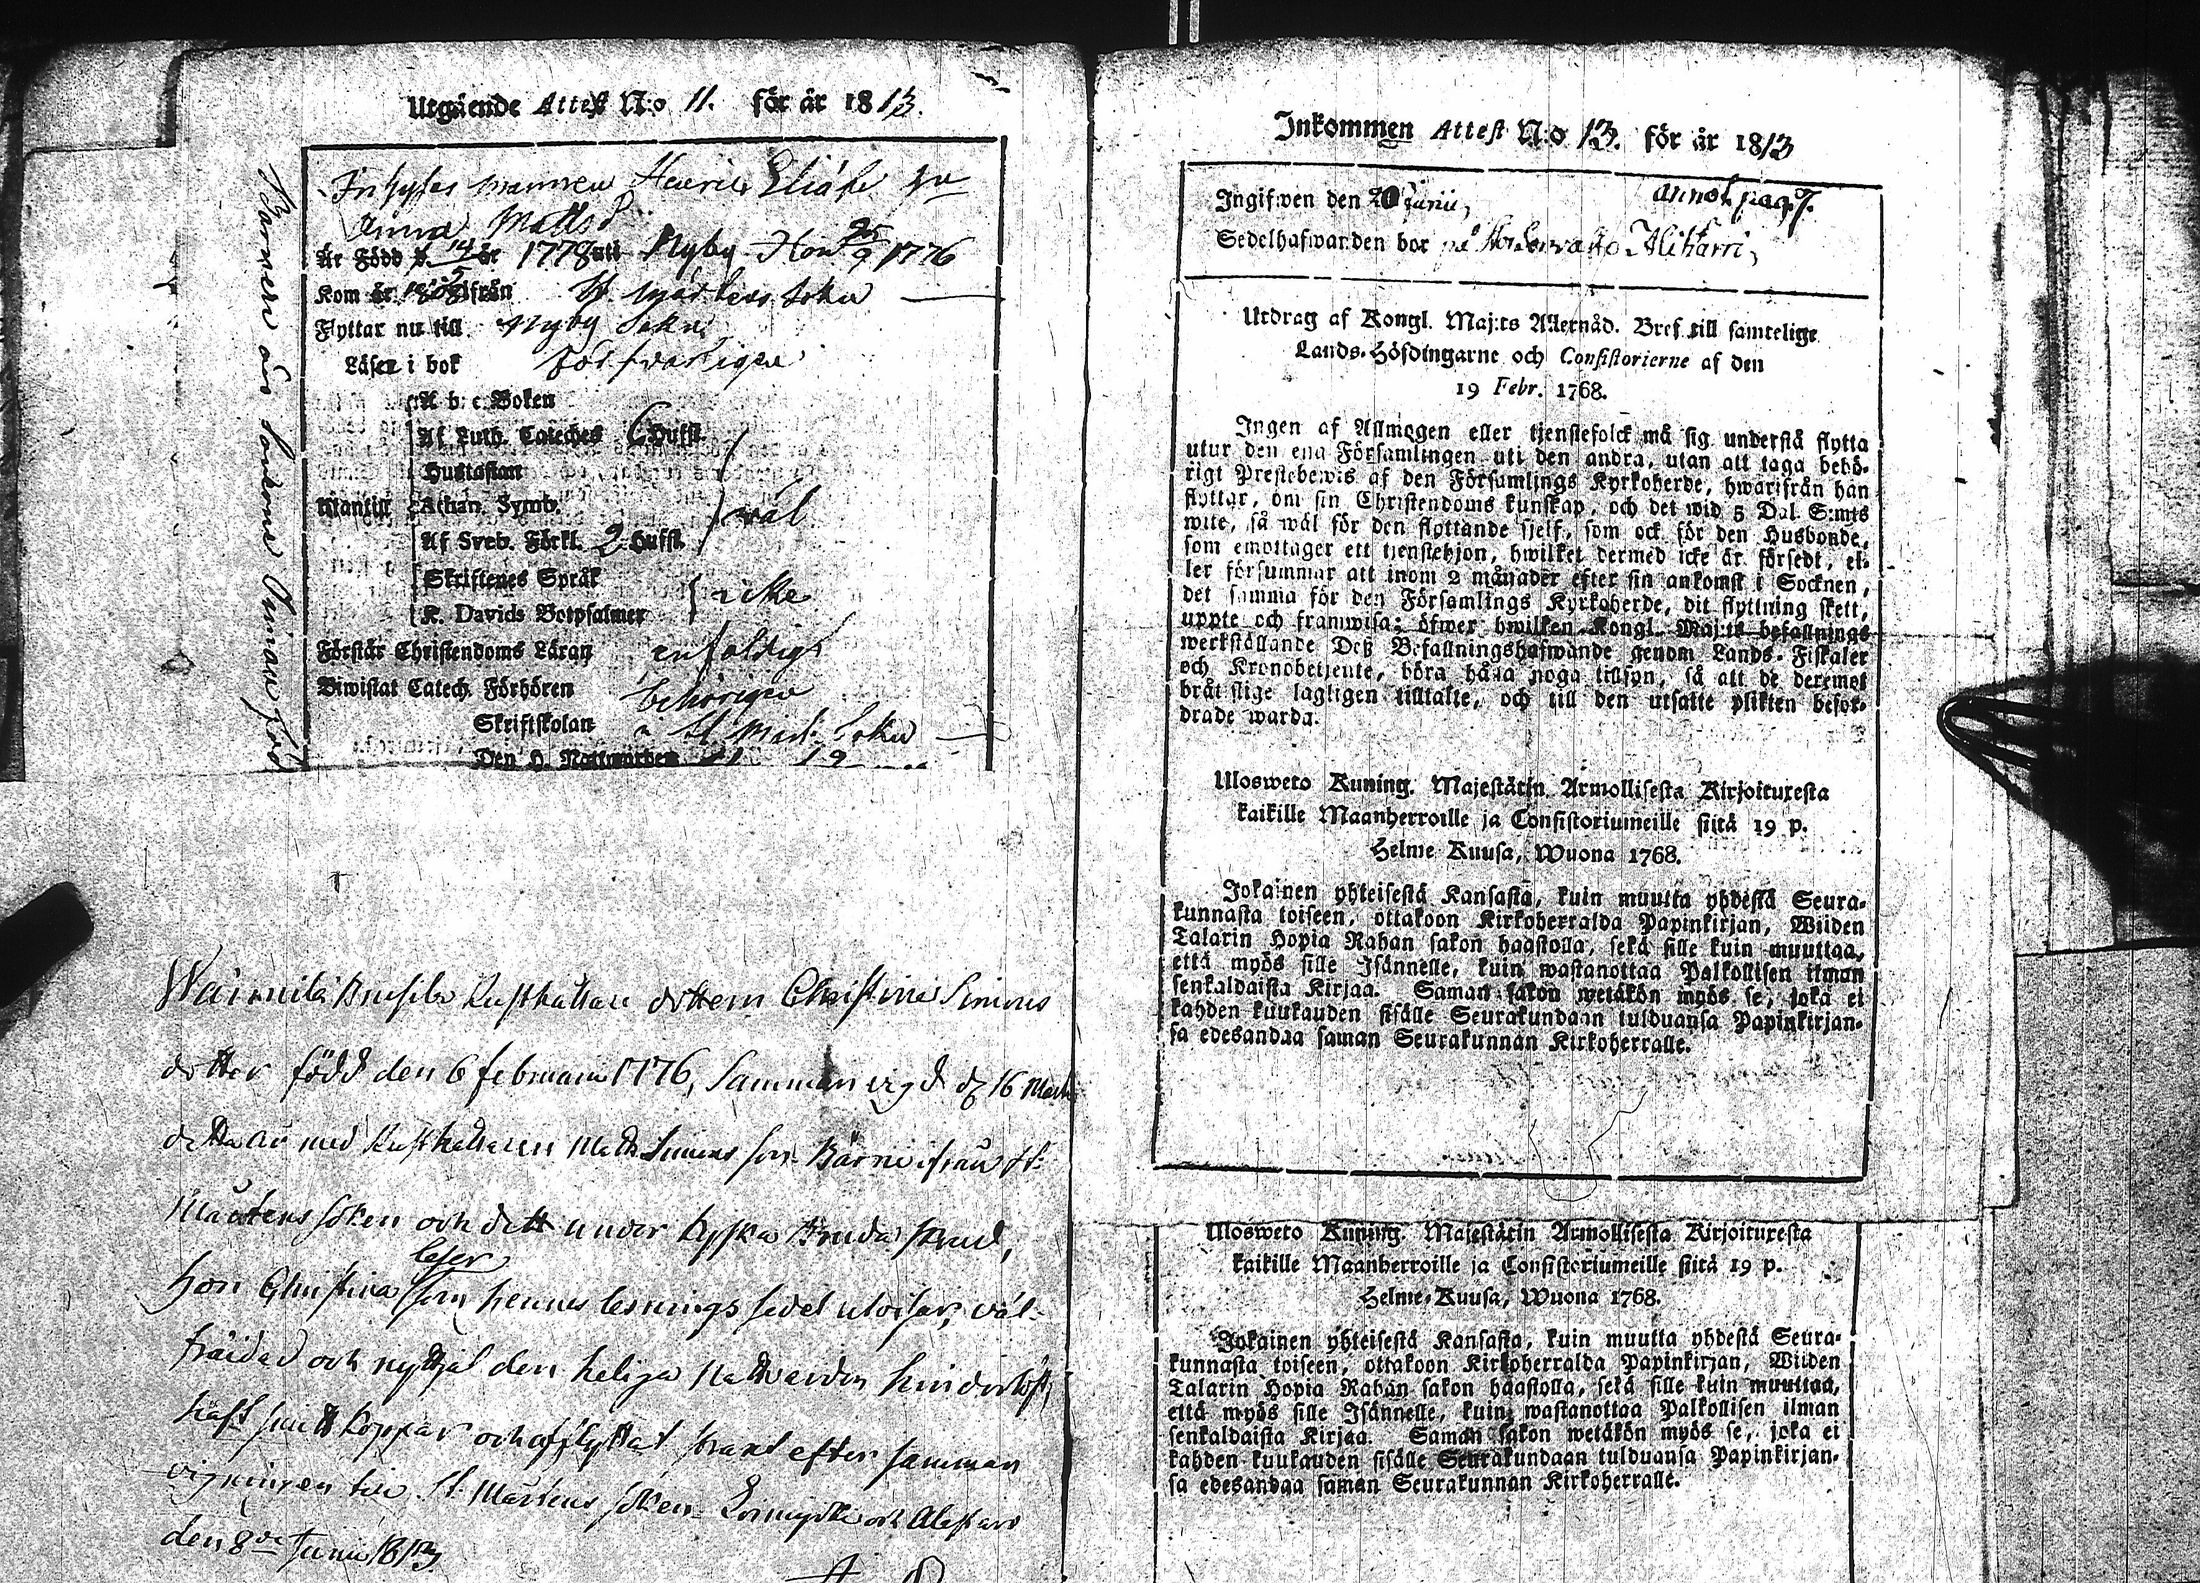 Utgående Attest N:o 11. för år 1813.
Inhyses mannen Henric
Anna Matts
Är Född d. 14/5 år 1778 uti Nyby Hon 25/9 1776
Kom år 1808 ifrån St. Mårtens Sokn
Flyttar nu till Nyby Sokn
Läser i bok försvarligen
A b. c. Boken
Af Luth. Cateches 6 Hufst.
Hustaflan
Utantill Athan. Symb. väl
Af Sveb. Förkl. 2 Hufst.
Skriftenes Språk
K. Davids Botpsalmer icke
Förstår Christendoms Läran enfoldigt
Biwistat Catech. Förhören behörigen
Skriftskolan i St. Mart. Sokn
Den H. Nattwarden
Barnen
Rusthållare dottern Christina Simons
dotter född den 6 februarii 1776, Sammanvigd d. 16 Martii
detta år med Rusthållaren Matts Simons son ifrån St:
Mårtens soken och det under kyska Bruda skrud,
hon Christina läser som hennes läsnings sedel utvisar, väl-
fräidad och nyttjat den heliga Nattvarden hinderlöst,
haft koppor och afflyttat straxt efter samman
vigningen till St. Mårtens soken Loimijoki och Alastaro
den 8de Junii 1813.
Inkommen Attest N:o 13. för år 1813
Ingifwen den 20 Junii, annot. pag. 7.
Sedelhafwanden bor på
Utdrag af Kongl. Maj:ts Allernåd. Bref till samtelige
Lands-Höfdingarne och Consistorierne af den
19 Febr. 1768.
Ingen af Allmogen eller tjenstefolck må sig understå flytta
utur den ena Församlingen uti den andra, utan att taga behö-
rigt Prestebewis af den Församlings Kyrkoherde, hwarifrån han
flyttar, om sin Christendoms kunskap, och det wid 5 Dal. S:mts
wite, så wäl för den flyttande sjelf, som ock för den Husbonde,
som emottager ett tjenstehjon, hwilket dermed icke är försedt, el-
ler försummar att inom 2 månader efter sin ankomst i Socknen,
det samma för den Församlings Kyrkoherde, dit flyttning skett,
uppte och framwisa; öfwer hwilken Kongl. Maj:ts befallnings
werkställande Deß Befallningshafwande genom Lands-Fiskaler
och Kronobetjente, böra hålla noga tillsyn, så att de deremot
bråtslige lagligen tilltalte, och till den utsatte plikten befor-
drade warda.
Ulosweto Kuning. Majestätin Armollisesta Kirjoituxesta
kaikille Maanherroille ja Consistoriumeille siitä 19 p.
Helme-Kuusa, Wuona 1768.
Jokainen yhteisestä Kansasta, kuin muutta yhdestä Seura-
kunnasta toiseen, ottakoon Kirkoherralda Papinkirjan, Wiiden
Talarin Hopia Rahan sakon haastolla, sekä sille kuin muuttaa,
että myös sille Isännelle, kuin wastanottaa Palkollisen ilman
senkaldaista Kirjaa. Saman sakon wetäkön myös se, joka ei
kahden kuukauden sisälle Seurakundaan tulduansa Papinkirjan-
sa edesandaa saman Seurakunnan Kirkoherralle.
Ulosweto Kuning. Majestätin Armollisesta Kirjoituxesta
kaikille Maanherroille ja Consistoriumeille siitä 19 p.
Helme-Kuusa, Wuona 1768.
Jokainen yhteisestä Kansasta, kuin muutta yhdestä Seura-
kunnasta toiseen, ottakoon Kirkoherralda Papinkirjan, Wiiden
Talarin Hopia Rahan sakon haastolla, sekä sille kuin muuttaa,
että myös sille Isännelle, kuin wastanottaa Palkollisen ilman
senkaldaista Kirjaa. Saman sakon wetäkön myös se, joka ei
kahden kuukauden sisälle Seurakundaan tulduansa Papinkirjan-
sa edesandaa saman Seurakunnan Kirkoherralle.